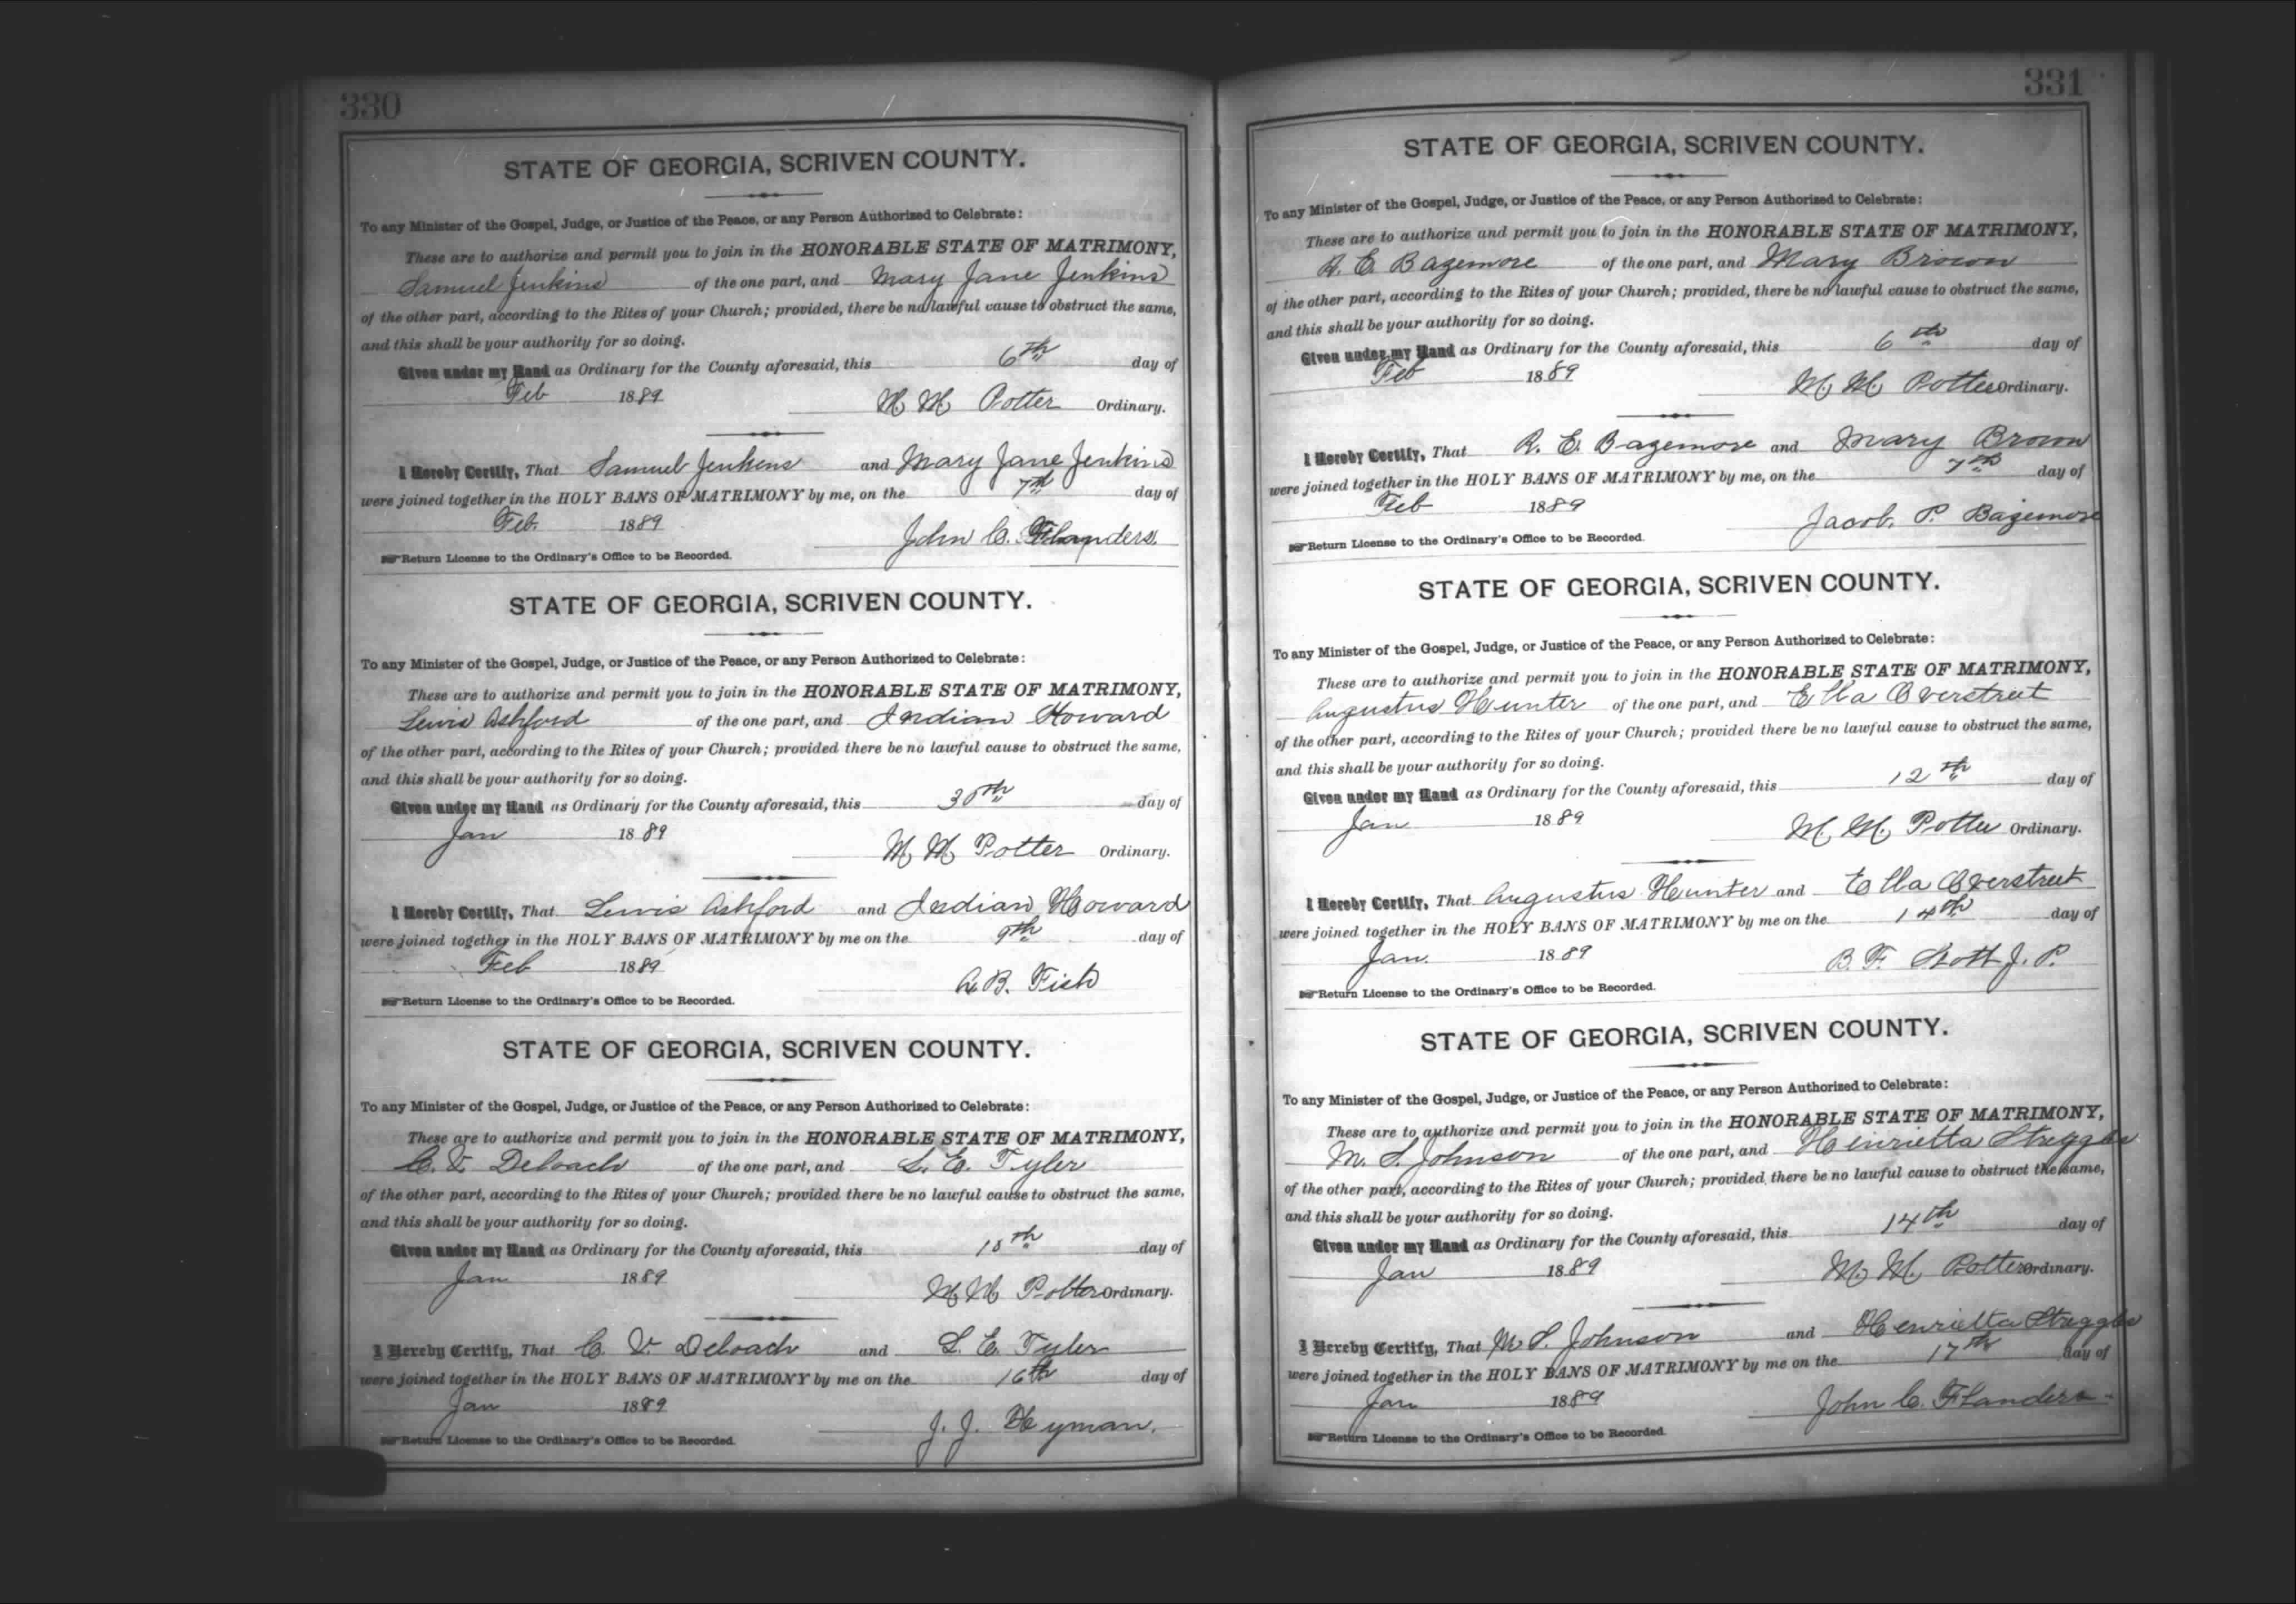 330
STATE OF GEORGIA, SCRIVEN COUNTY.
To any Minister of the Gospel, Judge, or Justice of the Peace, or any Person Authorized to Celebrate:
These are to authorize and permit you to join in the HONORABLE STATE OF MATRIMONY,
Samuel Jenkins of the one part, and Mary Jane Jenkins
of the other part, according to the Rites of your Church; provided, there be no lawful cause to obstruct the same,
and this shall be your authority for so doing.
Given under my Hand as Ordinary for the County aforesaid, this 6th day of
Feb 1889
M M Potter Ordinary.
I Hereby Certify, That Samuel Jenkins and Mary Jane Jenkins
were joined together in the HOLY BANS OF MATRIMONY by me, on the 7th day of
Feb. 1889
John C. Flanders.
Return License to the Ordinary's Office to be Recorded.
STATE OF GEORGIA, SCRIVEN COUNTY.
To any Minister of the Gospel, Judge, or Justice of the Peace, or any Person Authorized to Celebrate:
These are to authorize and permit you to join in the HONORABLE STATE OF MATRIMONY,
Lewis Ashford of the one part, and Indian Howard
of the other part, according to the Rites of your Church; provided there be no lawful cause to obstruct the same,
and this shall be your authority for so doing.
Given under my Hand as Ordinary for the County aforesaid, this 30th day of
Jan 1889
M M Potter Ordinary.
I Hereby Certify, That Lewis Ashford and Indian Howard
were joined together in the HOLY BANS OF MATRIMONY by me on the 9th day of
Feb 1889
B. Fish
Return License to the Ordinary's Office to be Recorded.
STATE OF GEORGIA, SCRIVEN COUNTY.
To any Minister of the Gospel, Judge, or Justice of the Peace, or any Person Authorized to Celebrate:
These are to authorize and permit you to join in the HONORABLE STATE OF MATRIMONY,
C. V. Deloach of the one part, and L. E. Tyler
of the other part, according to the Rites of your Church; provided there be no lawful cause to obstruct the same,
and this shall be your authority for so doing.
Given under my Hand as Ordinary for the County aforesaid, this day of
Jan 1889
M M Potter Ordinary.
I Hereby Certify, That C. V. Deloach and L. E. Tyler
were joined together in the HOLY BANS OF MATRIMONY by me on the 16th day of
Jan 1889
J. J. Hyman.
Return License to the Ordinary's Office to be Recorded.
331
STATE OF GEORGIA, SCRIVEN COUNTY.
To any Minister of the Gospel, Judge, or Justice of the Peace, or any Person Authorized to Celebrate:
These are to authorize and permit you to join in the HONORABLE STATE OF MATRIMONY,
R. E. Bazemore of the one part, and Mary Brown
of the other part, according to the Rites of your Church; provided, there be no lawful cause to obstruct the same,
and this shall be your authority for so doing.
Given under my Hand as Ordinary for the County aforesaid, this 6th day of
Feb 1889
M. M. Potter Ordinary.
I Hereby Certify, That R. E. Bazemore and Mary Brown
were joined together in the HOLY BANS OF MATRIMONY by me, on the 7th day of
Feb 1889
Jacob. P. Bazemore
Return License to the Ordinary's Office to be Recorded.
STATE OF GEORGIA, SCRIVEN COUNTY.
To any Minister of the Gospel, Judge, or Justice of the Peace, or any Person Authorized to Celebrate:
These are to authorize and permit you to join in the HONORABLE STATE OF MATRIMONY,
Augustus Hunter of the one part, and Ella Overstreet
of the other part, according to the Rites of your Church; provided there be no lawful cause to obstruct the same,
and this shall be your authority for so doing.
Given under my Hand as Ordinary for the County aforesaid, this 12th day of
Jan 1889
M. M. Potter Ordinary.
I Hereby Certify, That Augustus Hunter and Ella Overstreet
were joined together in the HOLY BANS OF MATRIMONY by me on the 14th day of
Jan. 1889
B. F. Scott J. P.
Return License to the Ordinary's Office to be Recorded.
STATE OF GEORGIA, SCRIVEN COUNTY.
To any Minister of the Gospel, Judge, or Justice of the Peace, or any Person Authorized to Celebrate:
These are to authorize and permit you to join in the HONORABLE STATE OF MATRIMONY,
M. S. Johnson of the one part, and Henrietta Struggles
of the other part, according to the Rites of your Church; provided there be no lawful cause to obstruct the same,
and this shall be your authority for so doing.
Given under my Hand as Ordinary for the County aforesaid, this 14th day of
Jan 1889
M. M. Potter Ordinary.
I Hereby Certify, That M S. Johnson and Henrietta Struggles
were joined together in the HOLY BANS OF MATRIMONY by me on the 17th day of
Jan 1889
John C. Flanders
Return License to the Ordinary's Office to be Recorded.